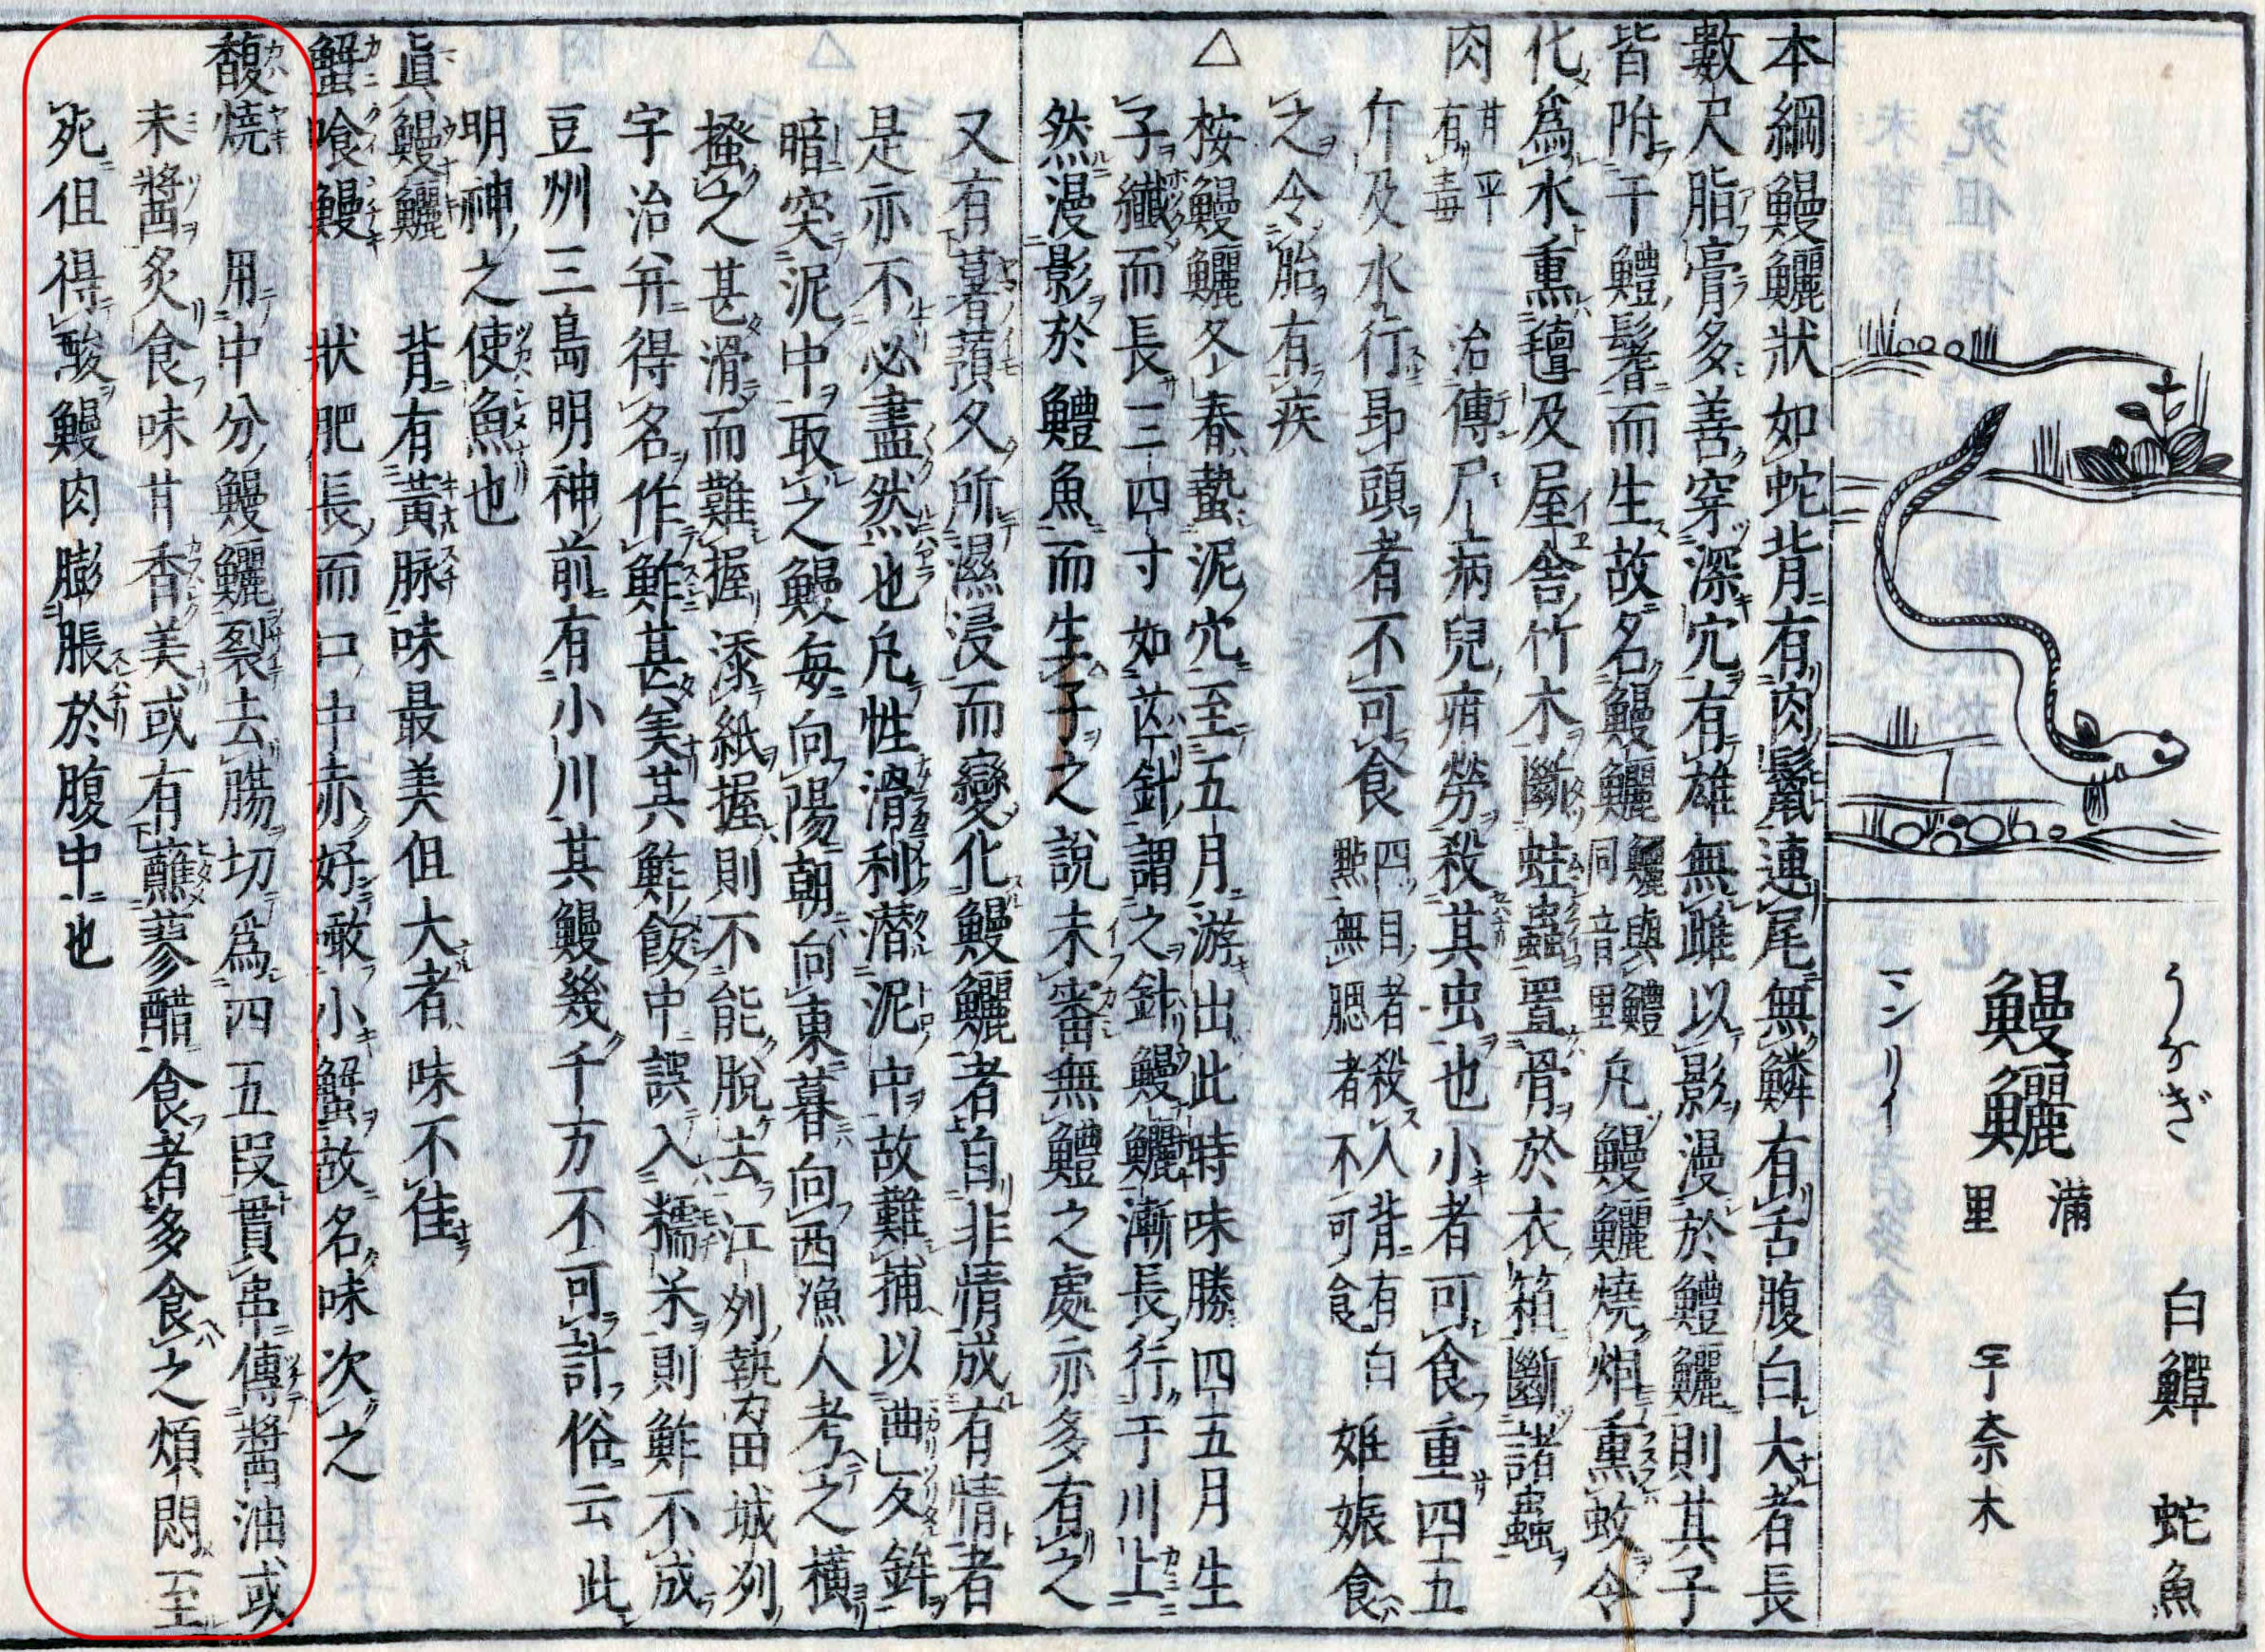 うなぎ　白鱓　蛇魚
鰻鱺　滿里　宇奈木
マンリイ
本綱鰻鱺狀如蛇背有肉鬣連尾無鱗有舌腹白大者長
數尺脂膏多善穿深穴有雄無雌以影漫於鱧鱺則其子
皆附于鱧鬐而生故名鰻鱺鱺與鱧同音里凡鰻鱺燒烟熏蚊令
化爲水熏氊及屋舍竹木斷蛀蟲置骨於衣箱斷諸蟲
肉甘平有毒　治傳尸病兒疳勞殺其虫也小者可食重四五
斤及水行昂頭者不可食四目者殺人背有白點無腮者不可食妊娠食
之令胎有疾
△按鰻鱺冬春蟄泥穴至五月游出此時味勝四五月生
子纖而長三四寸如苡針謂之針鰻鱺漸長行于川上
然漫影於鱧魚而生子之說未審無鱧之處亦多有之
又有薯蕷久所濕浸而變化鰻鱺者自非情成有情者
是亦不必盡然也凡性滑利潜泥中故難捕以曲及鉾
暗突泥中取之鰻每向陽朝向東暮向西漁人考之橫
搔之甚滑而難握添紙握則不能脫去江州勢田城州
宇治并得名作鮓甚美其鮓飯中誤入糯米則鮓不成
豆州三島明神前有小川其鰻幾千万不可計俗云此
明神之使魚也
眞鰻鱺　背有黃脉味最美但大者味不佳
蟹喰鰻　狀肥長而口中赤好噉小蟹故名味次之
馥燒　用中分鰻鱺裂去腸切爲四五段貫串傳醬油或
未醬炙食味甘香美或有蘸蓼醋食者多食之煩悶至
死但得酸鰻肉膨脹於腹中也